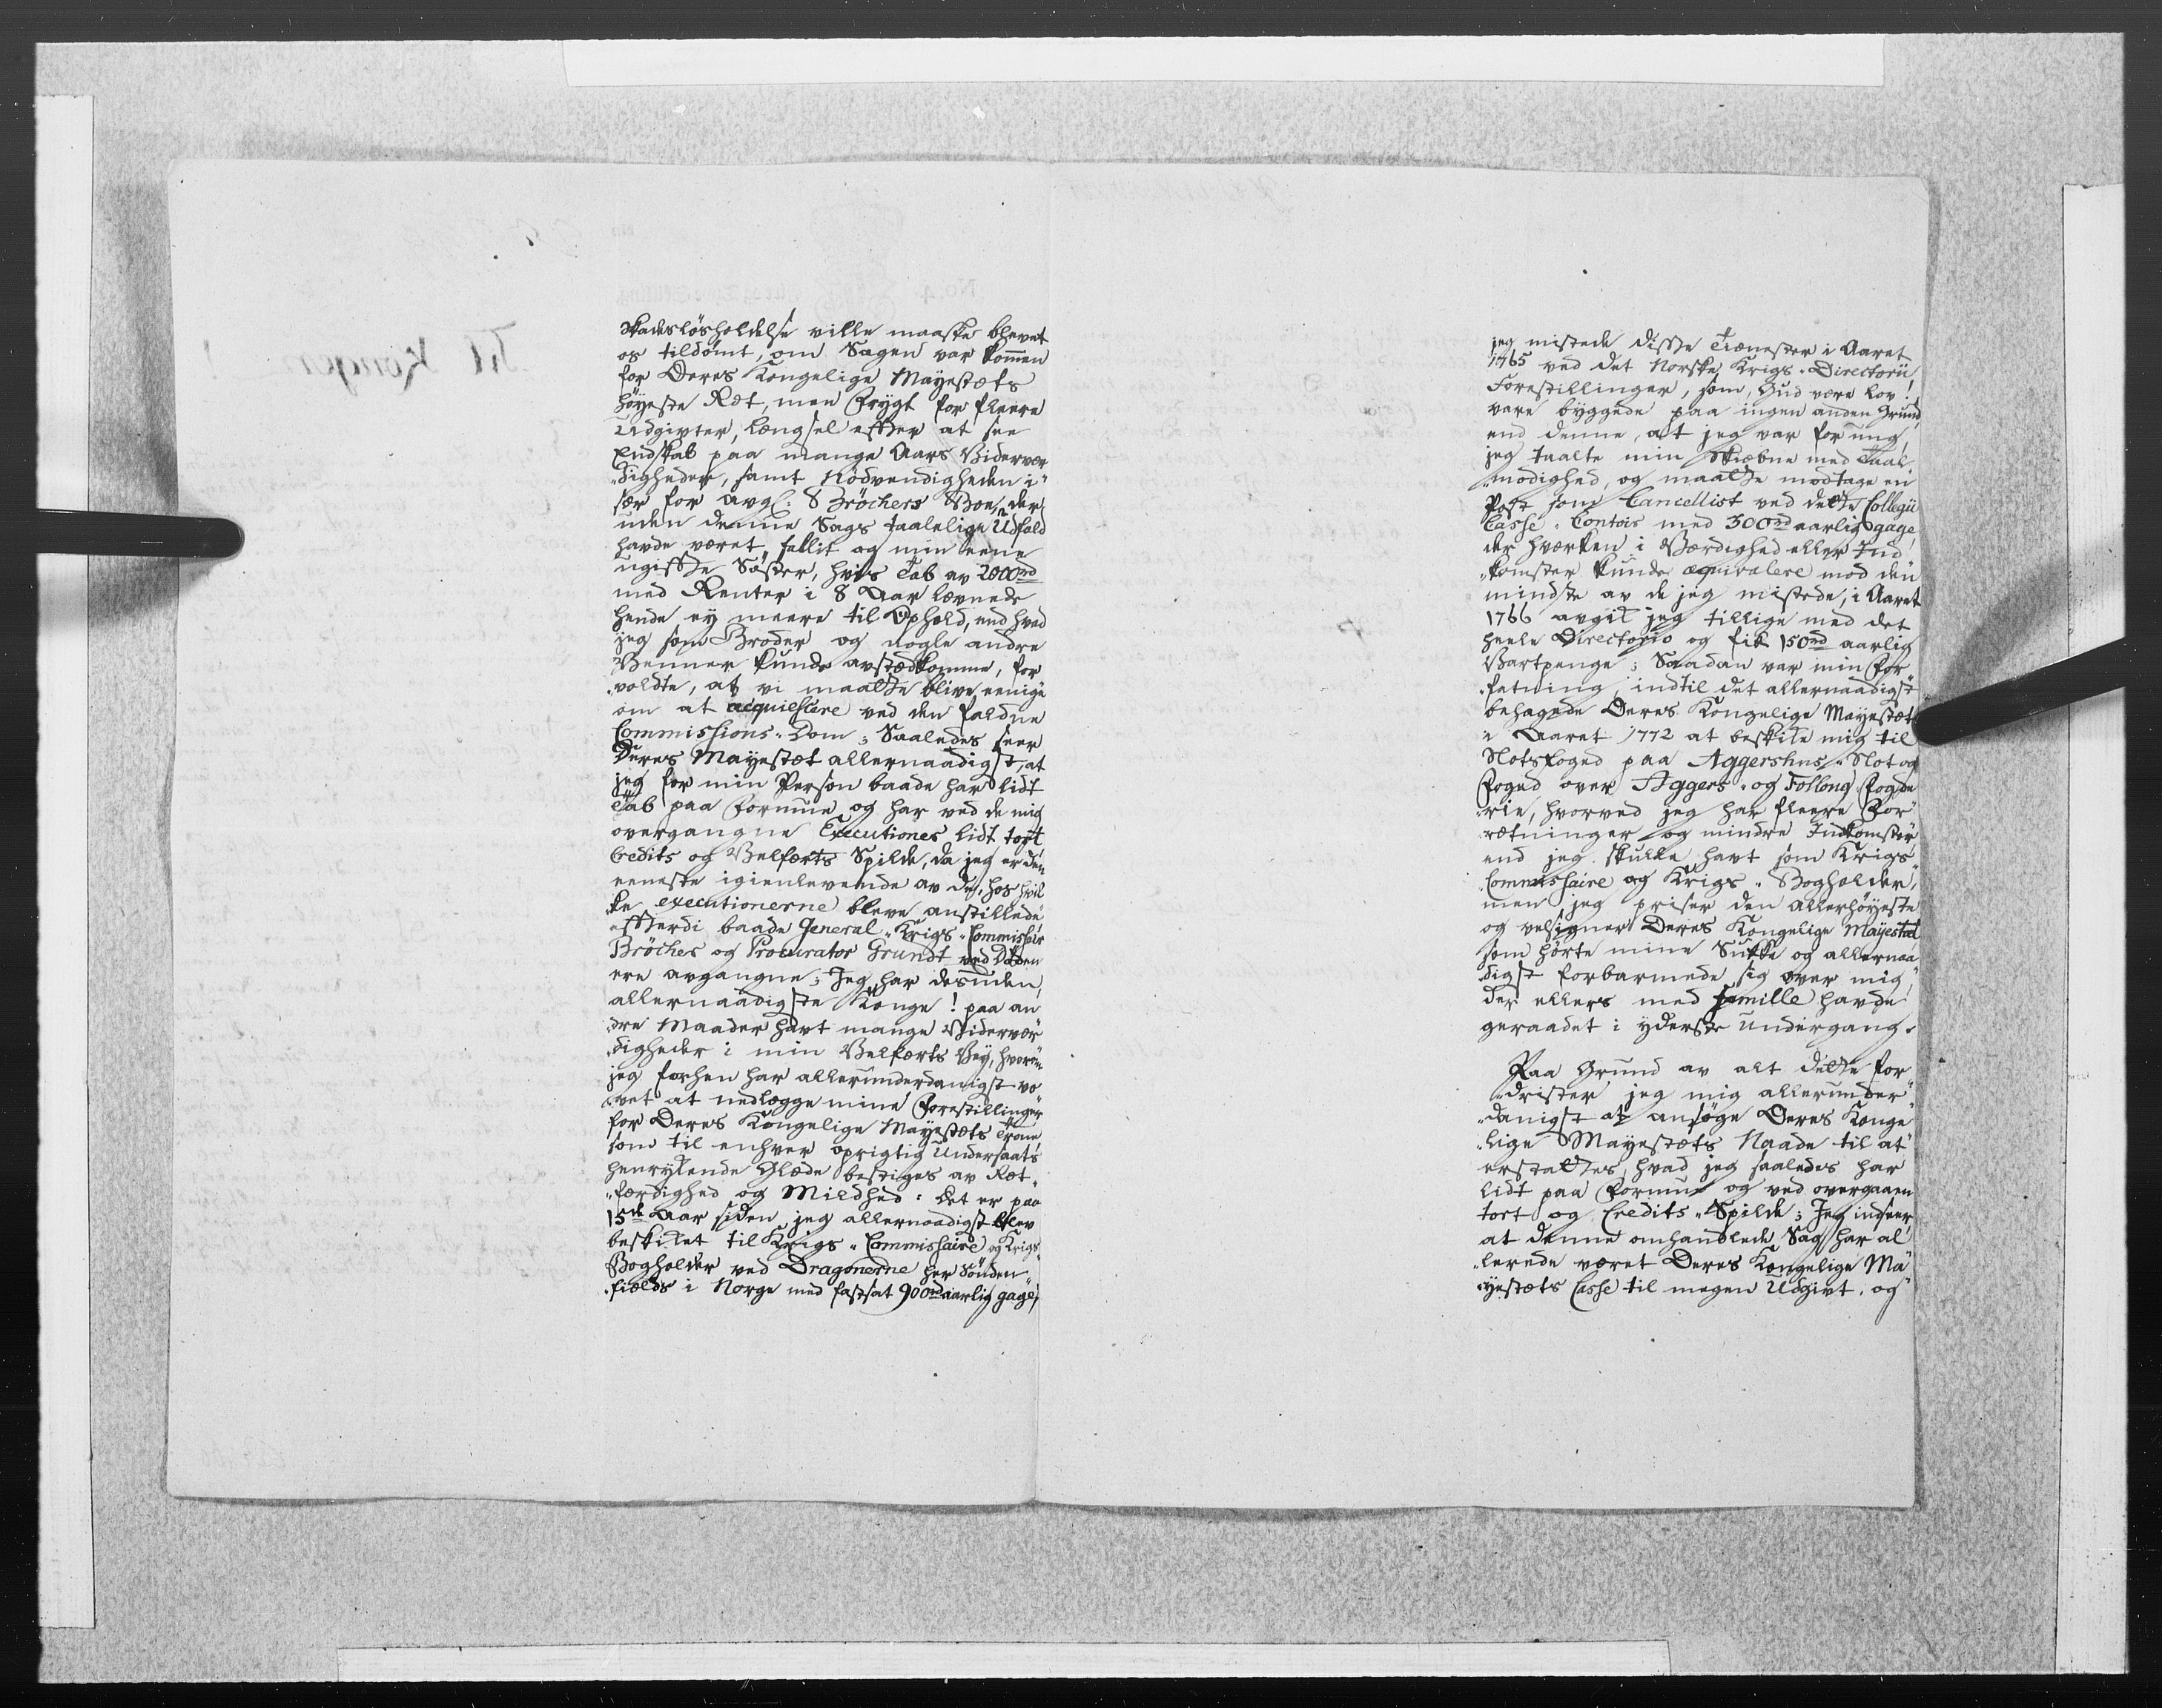 Skadeslösholdelse ville maaske blevet
os tildömt, om Sagen var kommen
for Deres Kongelige Mayestæts
höyeste Ræt, men Frygt for fleere
Udgivter, længsel effter at see
Endskab paa mange Aars Vidervær
„digheder, samt Nödvendigheden i
sær for avg: Bröchers Boe, der
uden denne Sags taalelige Udfald
havde været fallit og min eene
ugiffte Söster, hvis Tab av 2000rd
med Renter i 8 Aar levnede
hende ey meere til Ophold, end hvad
jeg som Broder og nogle andre
Venner kunde avstedkomme, for
„voldte, at vi maatte blive eenige
om at acquiescere ved den faldne
Commissions„Dom; Saaledes seer
Deres Mayestæt allernaadigst, at
jeg for min Person baade har lidt
Tab paa Formue og har ved de mig
overgangne Executioner lidt tort
Credits og Velfærts Spilde, da jeg er den
eeneste igienlevende av de, hos hvil
„ke executionerne bleve anstillede
efterdi baade General„Krigs„Commissair
Bröcher og Procurator Grundt ved Döden
ere avgangne; Jeg har desuden,
allernaadigste Konge! paa an
„dre Maader havt mange Vidervær
„digheder i min Velfærts Vey, hvorom
jeg forhen har allerunderdanigst vo
„vet at nedlægge mine Forestillinger
for Deres Kongelige Mayestæts Trone
som til enhver oprigtig Undersaats
henrykende Glæde bestiges av Ræt
„færdighed og Mildhed: Det er paa
15de Aar siden jeg allernaadigst blev
beskiket til Krigs„Commissaire og Krigs
Bogholder ved Dragonerne her Sönden
„fields i Norge med fastsat 900rd aarlig gage,
Til Kongen
jeg mistede disse Tienester i Aaret
1765 ved det Norske Krigs„Directorii
Forestillinger, som, Gud være lov!
vare byggede paa ingen anden Grund,
end denne, at jeg var for ung,
jeg taalte min Skiæbne med Taal
„modighed, og maatte modtage en
Post som Cancellist ved dette Collegii
Casse„Contoir med 300rd aarlig gage
der hverken i Værdighed eller Ind
„komster kunde æquivalere mod den
mindste av de jeg mistede, i Aaret
1766 avgik jeg tillige med det
heele Directorio og fik 150rd aarlig
Vartpenge; Saadan var min For
„fatning, indtil det allernaadigst
behagede Deres Kongelige Mayestæt
i Aaret 1772 at beskike mig til
Slotsfoged paa Aggershus„Slot og
Foged over Aggers„ og Follong Fogde
„rie, hvorved jeg har fleere For
„rætninger og mindre Indkomster
end jeg skulle havt som Krigs
Commissaire og Krigs„Bogholder,
men jeg priser den allerhöyeste
og velsigner Deres Kongelige Mayestæt
som hörte mine Sukke og allernaa
„digst forbarmede sig over mig,
der ellers med famille havde
geraadet i yderste undergang.
Paa Grund av alt dette for
„drister jeg mig allerunder
„danigst at ansöge Deres Konge
„lige Mayestæts Naade til at
erstattes, hvad jeg saaledes har
lidt paa Formue og ved overgaaen
tort og Credits„Spilde; Jeg indseer
at denne omhandlede Sag har al
„lerede været Deres Kongelige Ma
„yestæts Casse til megen Udgivt, og